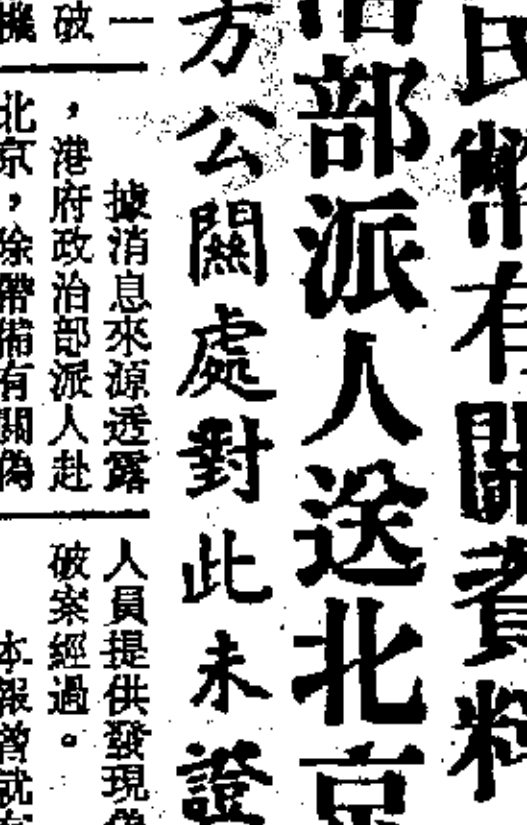 民幣有關資料
部派人送北京
方公關處對此未證
一
據消息來源透露
破
，港府政治部派人赴
機
北京，除帶備有關偽
人員提供發現偽
破案經過。
本報曾就有